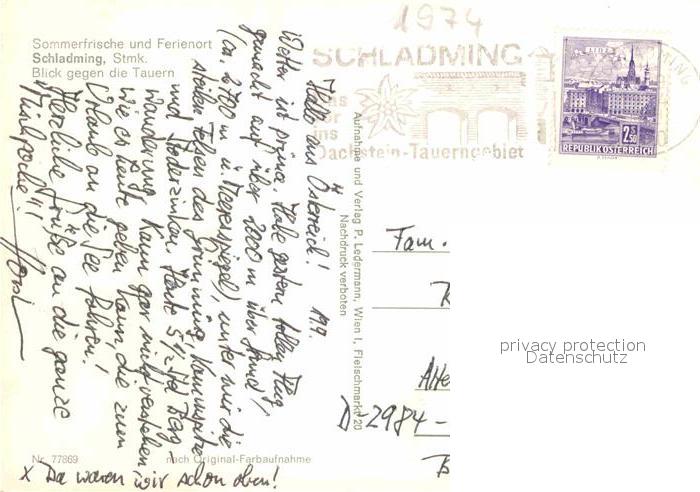 1974
Sommerfrische und Ferienort
Schladming, Stmk.
Blick gegen die Tauern
SCHLADMING
Das
Tor
ins
Dachstein-Tauerngebiet
LINZ
2.50
REPUBLIK ÖSTERREICH
Hallo aus Österreich! 19.9.
Wetter ist prima. Habe gestern tollen Flug
gemacht auf über 2000 m über Grund,
(ca. 2700 m ü. Meeresspiegel), unter mir die
steilen Felsen des Grimming, Kammspitze
und Stoderzinken. Heute 5 1/2 Std Berg-
wanderung. Kann gar nicht verstehen,
wie es Leute geben kann, die zum
Urlaub an die See fahren!
Herzliche Grüße an die ganze
Mischpoche!!!
Horst
x Da waren wir schon oben!
Aufnahme und Verlag P. Ledermann, Wien I, Fleischmarkt 20
Nachdruck verboten
Fam.
D-2984 -
privacy protection
Datenschutz
Nr. 77869
nach Original-Farbaufnahme